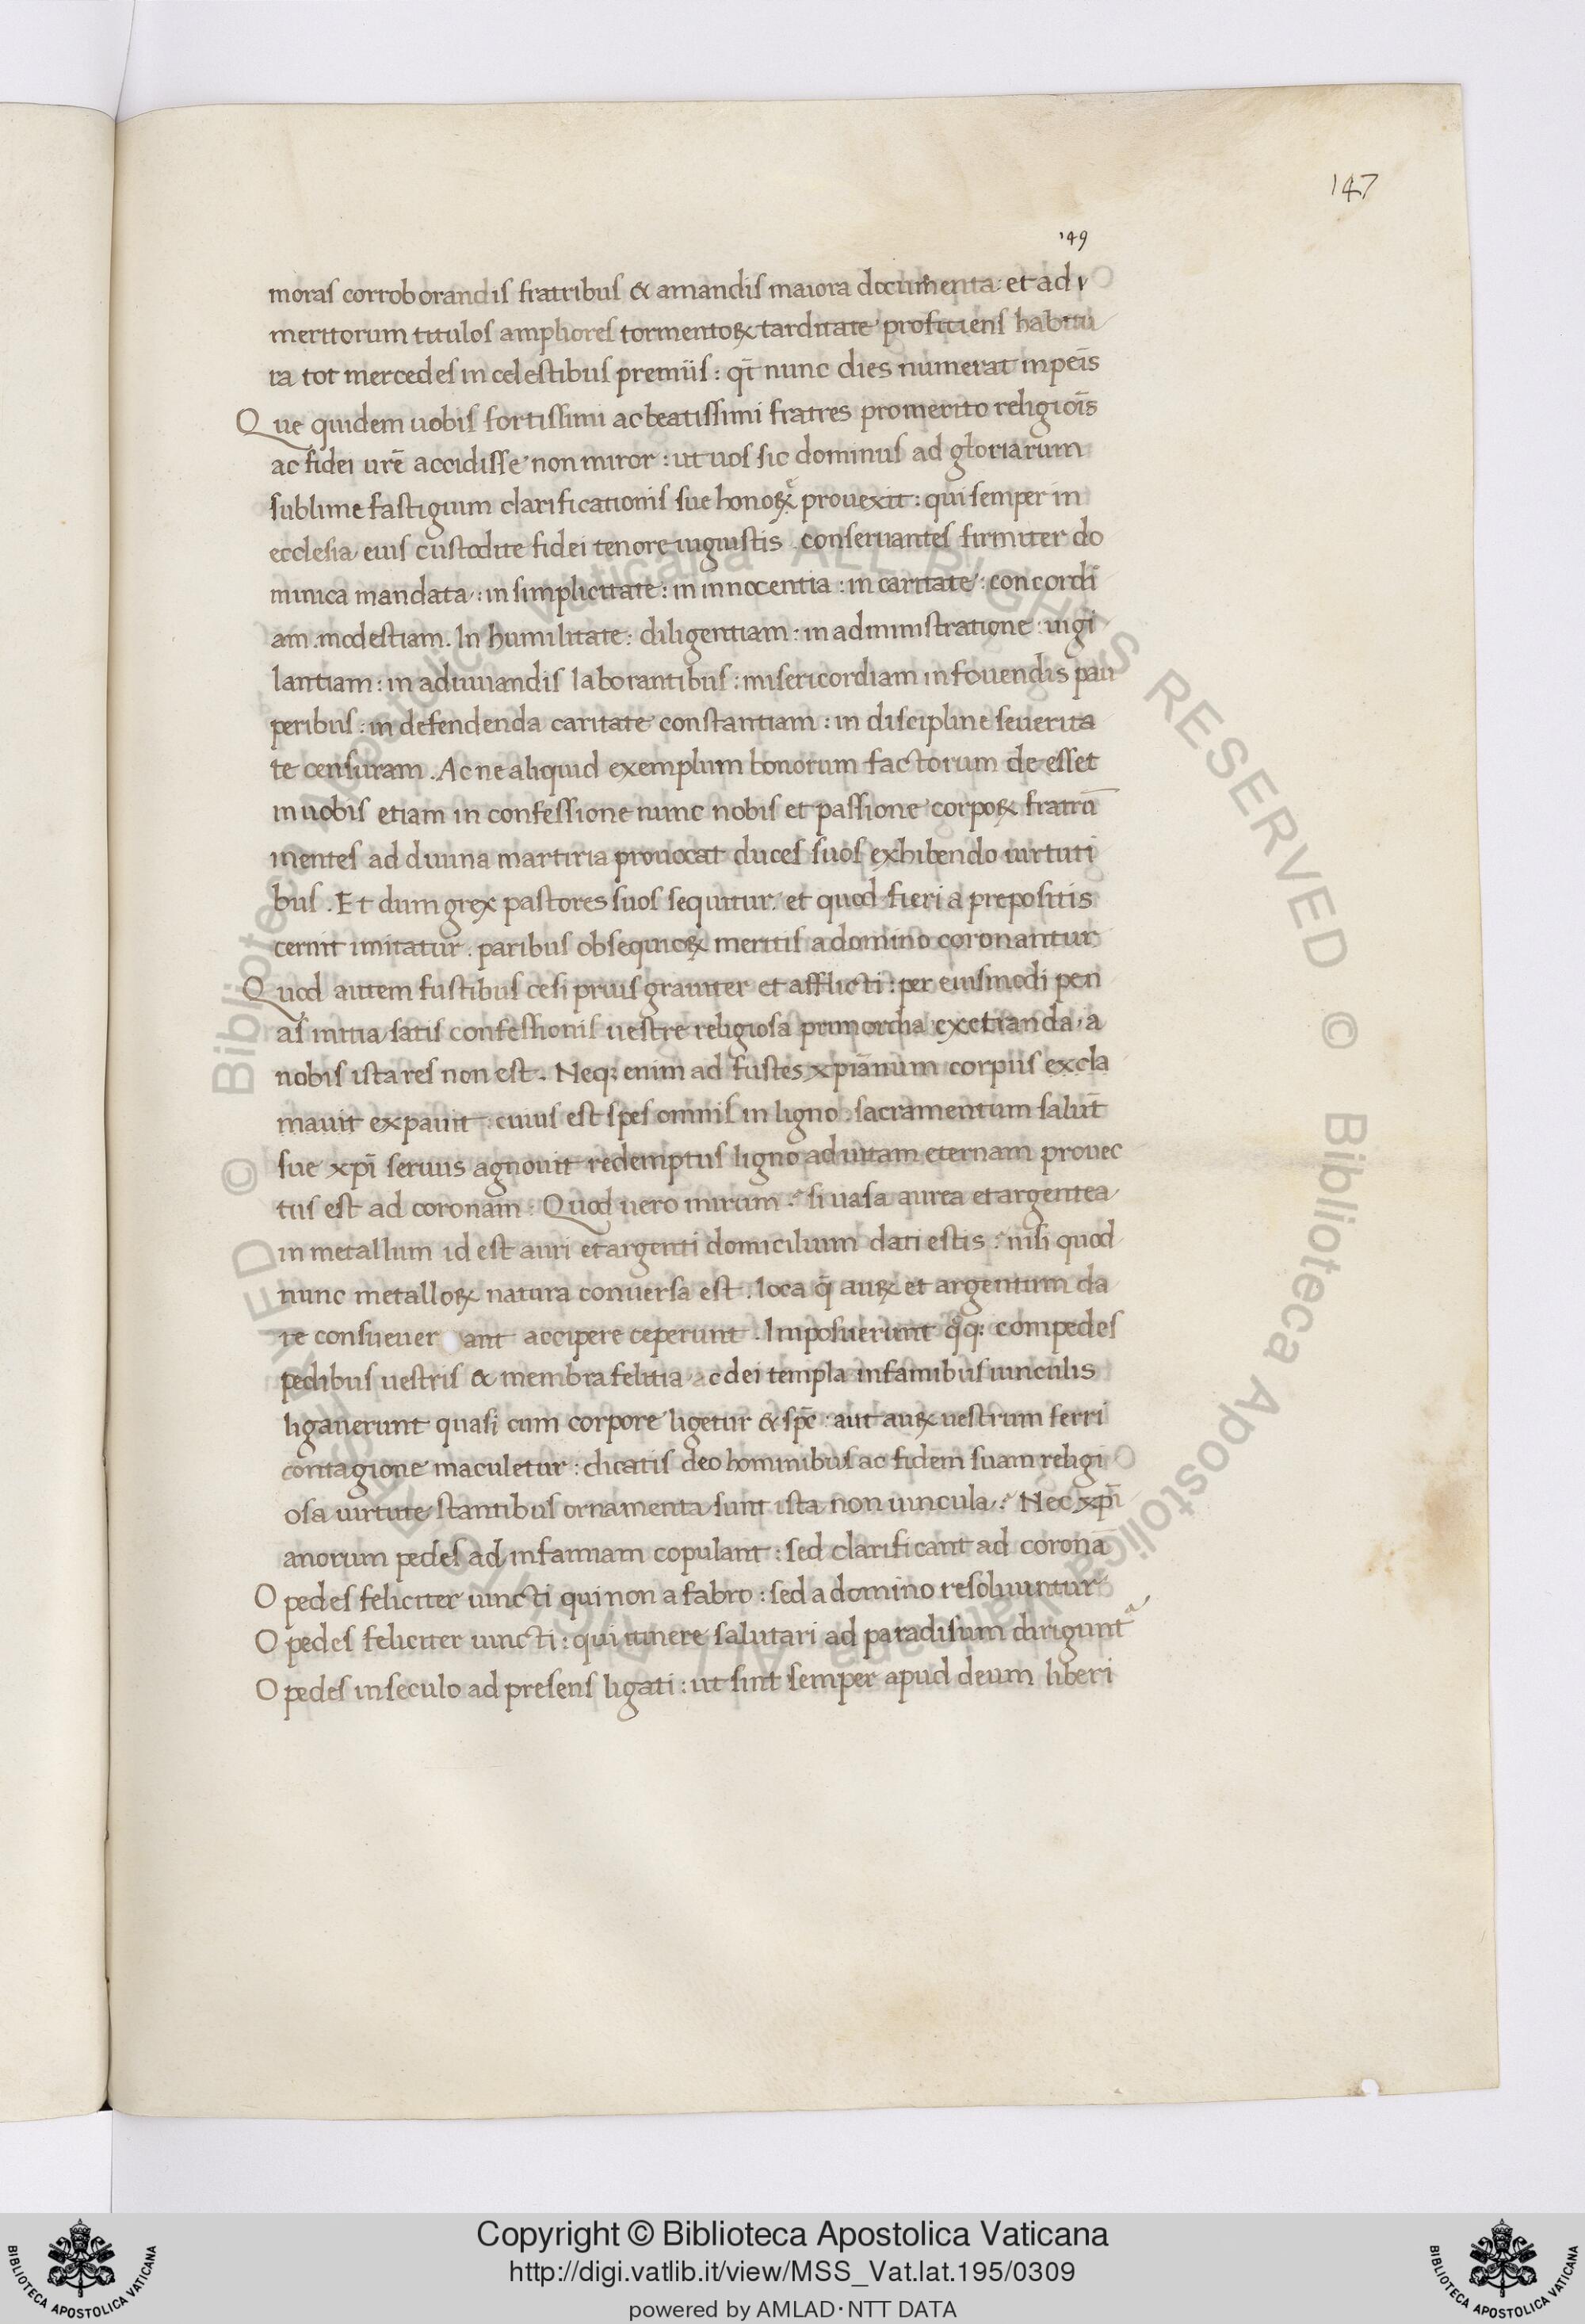 147
149
moras corroborandis fratribus & amandis maiora documenta et ad
meritorum titulos ampliores tormentoꝝ tarditate proficiens habitu
ra tot mercedes in celestibus premiis : qt̄ nunc dies numerat in peīs
Que quidem uobis fortissimi ac beatissimi fratres pro merito religioīs
ac fidei urē accidisse non miror : ut uos sic dominus ad gloriarum
sublime fastigium clarificationis sue honoꝝ prouexit : qui semper in
ecclesia eius custodite fidei tenore uiguistis . conseruantes firmiter do
minica mandata : in simplicitate : in innocentia : in caritate : concordi
am . modestiam . In humilitate : diligentiam : in administratione : uigi
lantiam : in adiuuandis laborantibus : misericordiam in fouendis pau
peribus : in defendenda caritate constantiam : in discipline seuerita
te censuram . Ac ne aliquid exemplum bonorum factorum de esset
in uobis etiam in confessione nunc nobis et passione corpoꝝ fratrū
mentes ad diuina martiria prouocat duces suos exhibendo uirtuti
bus . Et dum grex pastores suos sequitur . et quod fieri a prepositis
cernit imitatur . paribus obsequioꝝ meritis a domino coronantur
Quod autem fustibus cesi prius grauiter et afflicti : per eiusmodi pen
as initia satis confessionis uestre religiosa primordia exetianda a
nobis ista res non est . Neqꝫ enim ad fustes xpīanum corpus excla
mauit expauit : cuius est spes omnis in ligno . sacramentum salut̄
sue xpī seruus agnouit redemptus ligno ad uitam eternam prouec
tus est ad coronam : Quod uero mirum . si uasa aurea et argentea
in metallum id est auri et argenti domicilium dati estis : nisi quod
nunc metalloꝝ natura conuersa est . loca q̄ auꝝ et argentum da
re consueuer ant accipere ceperunt . Imposuerunt q̄qꝫ compedes
pedibus uestris & membra felitia ac dei templa infamibus uinculis
ligauerunt quasi cum corpore ligetur & spē : aut auꝝ uestrum ferri
contagione maculetur : dicatis deo hominibus ac fidem suam religi
osa uirtute stantibus ornamenta sunt ista non uincula . Nec xpī
anorum pedes ad infamiam copulant : sed clarificant ad coronā
O pedes feliciter uincti qui non a fabro : sed a domino resoluuntur
O pedes feliciter uincti : qui itinere salutari ad paradisum dirigunt
O pedes in seculo ad presens ligati : ut sint semper apud deum liberi
© Biblioteca Apostolica Vaticana ALL RIGHTS RESERVED © Biblioteca Apostolica Vaticana ALL RIGHTS RESERVED
Copyright © Biblioteca Apostolica Vaticana
http://digi.vatlib.it/view/MSS_Vat.lat.195/0309
powered by AMLAD·NTT DATA
BIBLIOTECA APOSTOLICA VATICANA
BIBLIOTECA APOSTOLICA VATICANA